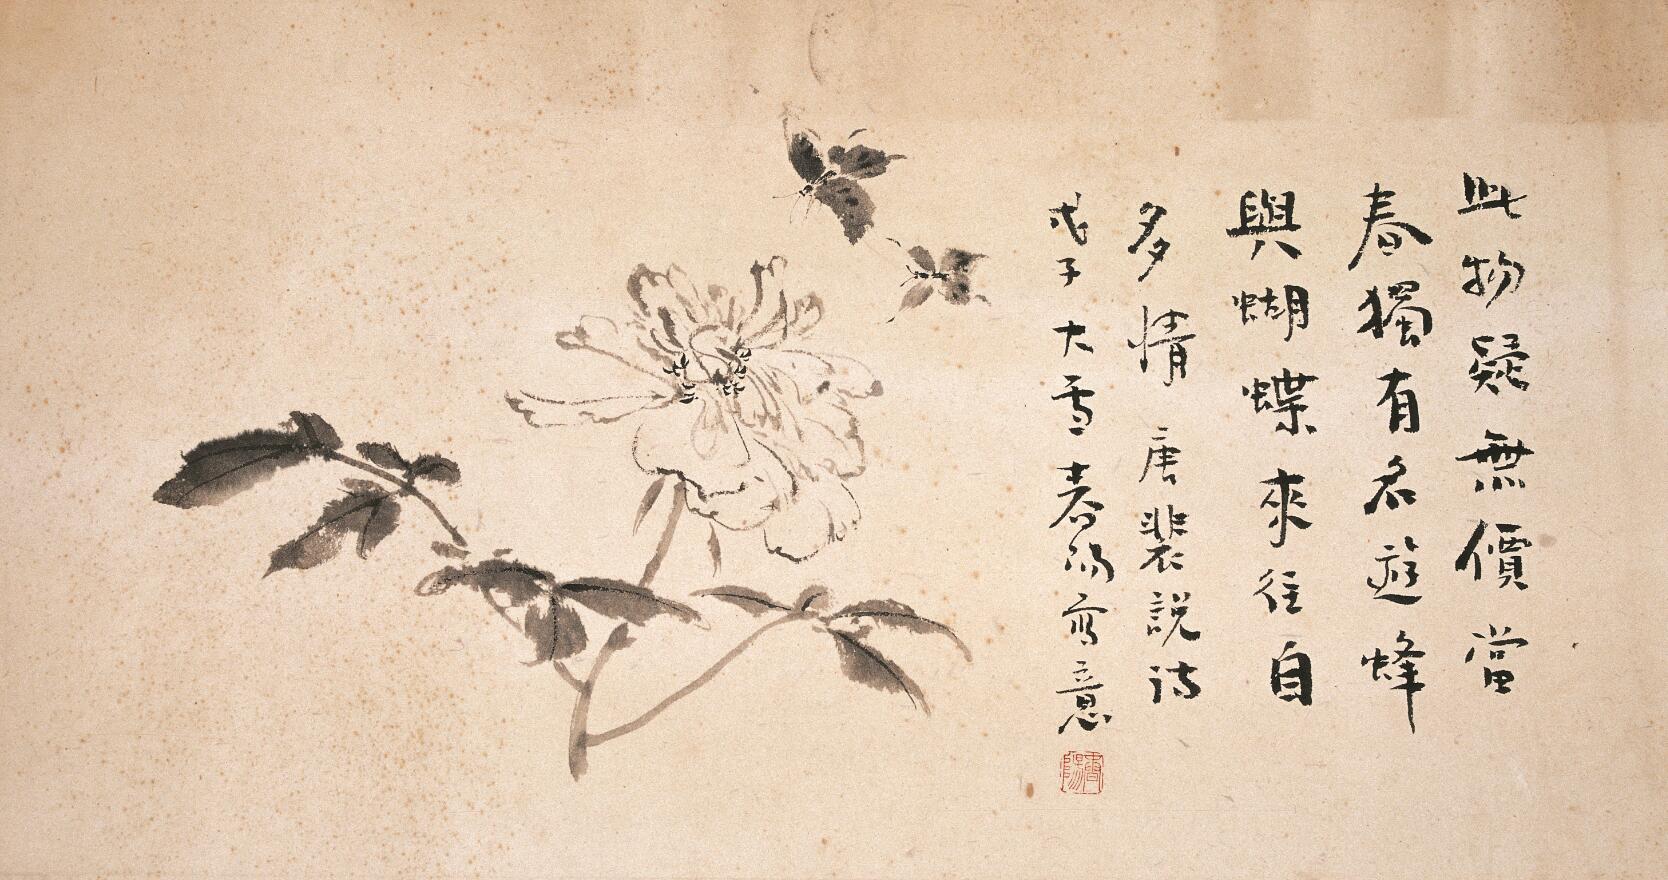 此物疑無價當
春獨有名遊蜂
與蝴蝶來往自
多情 唐裴說詩
戊子大雪春陽寫意